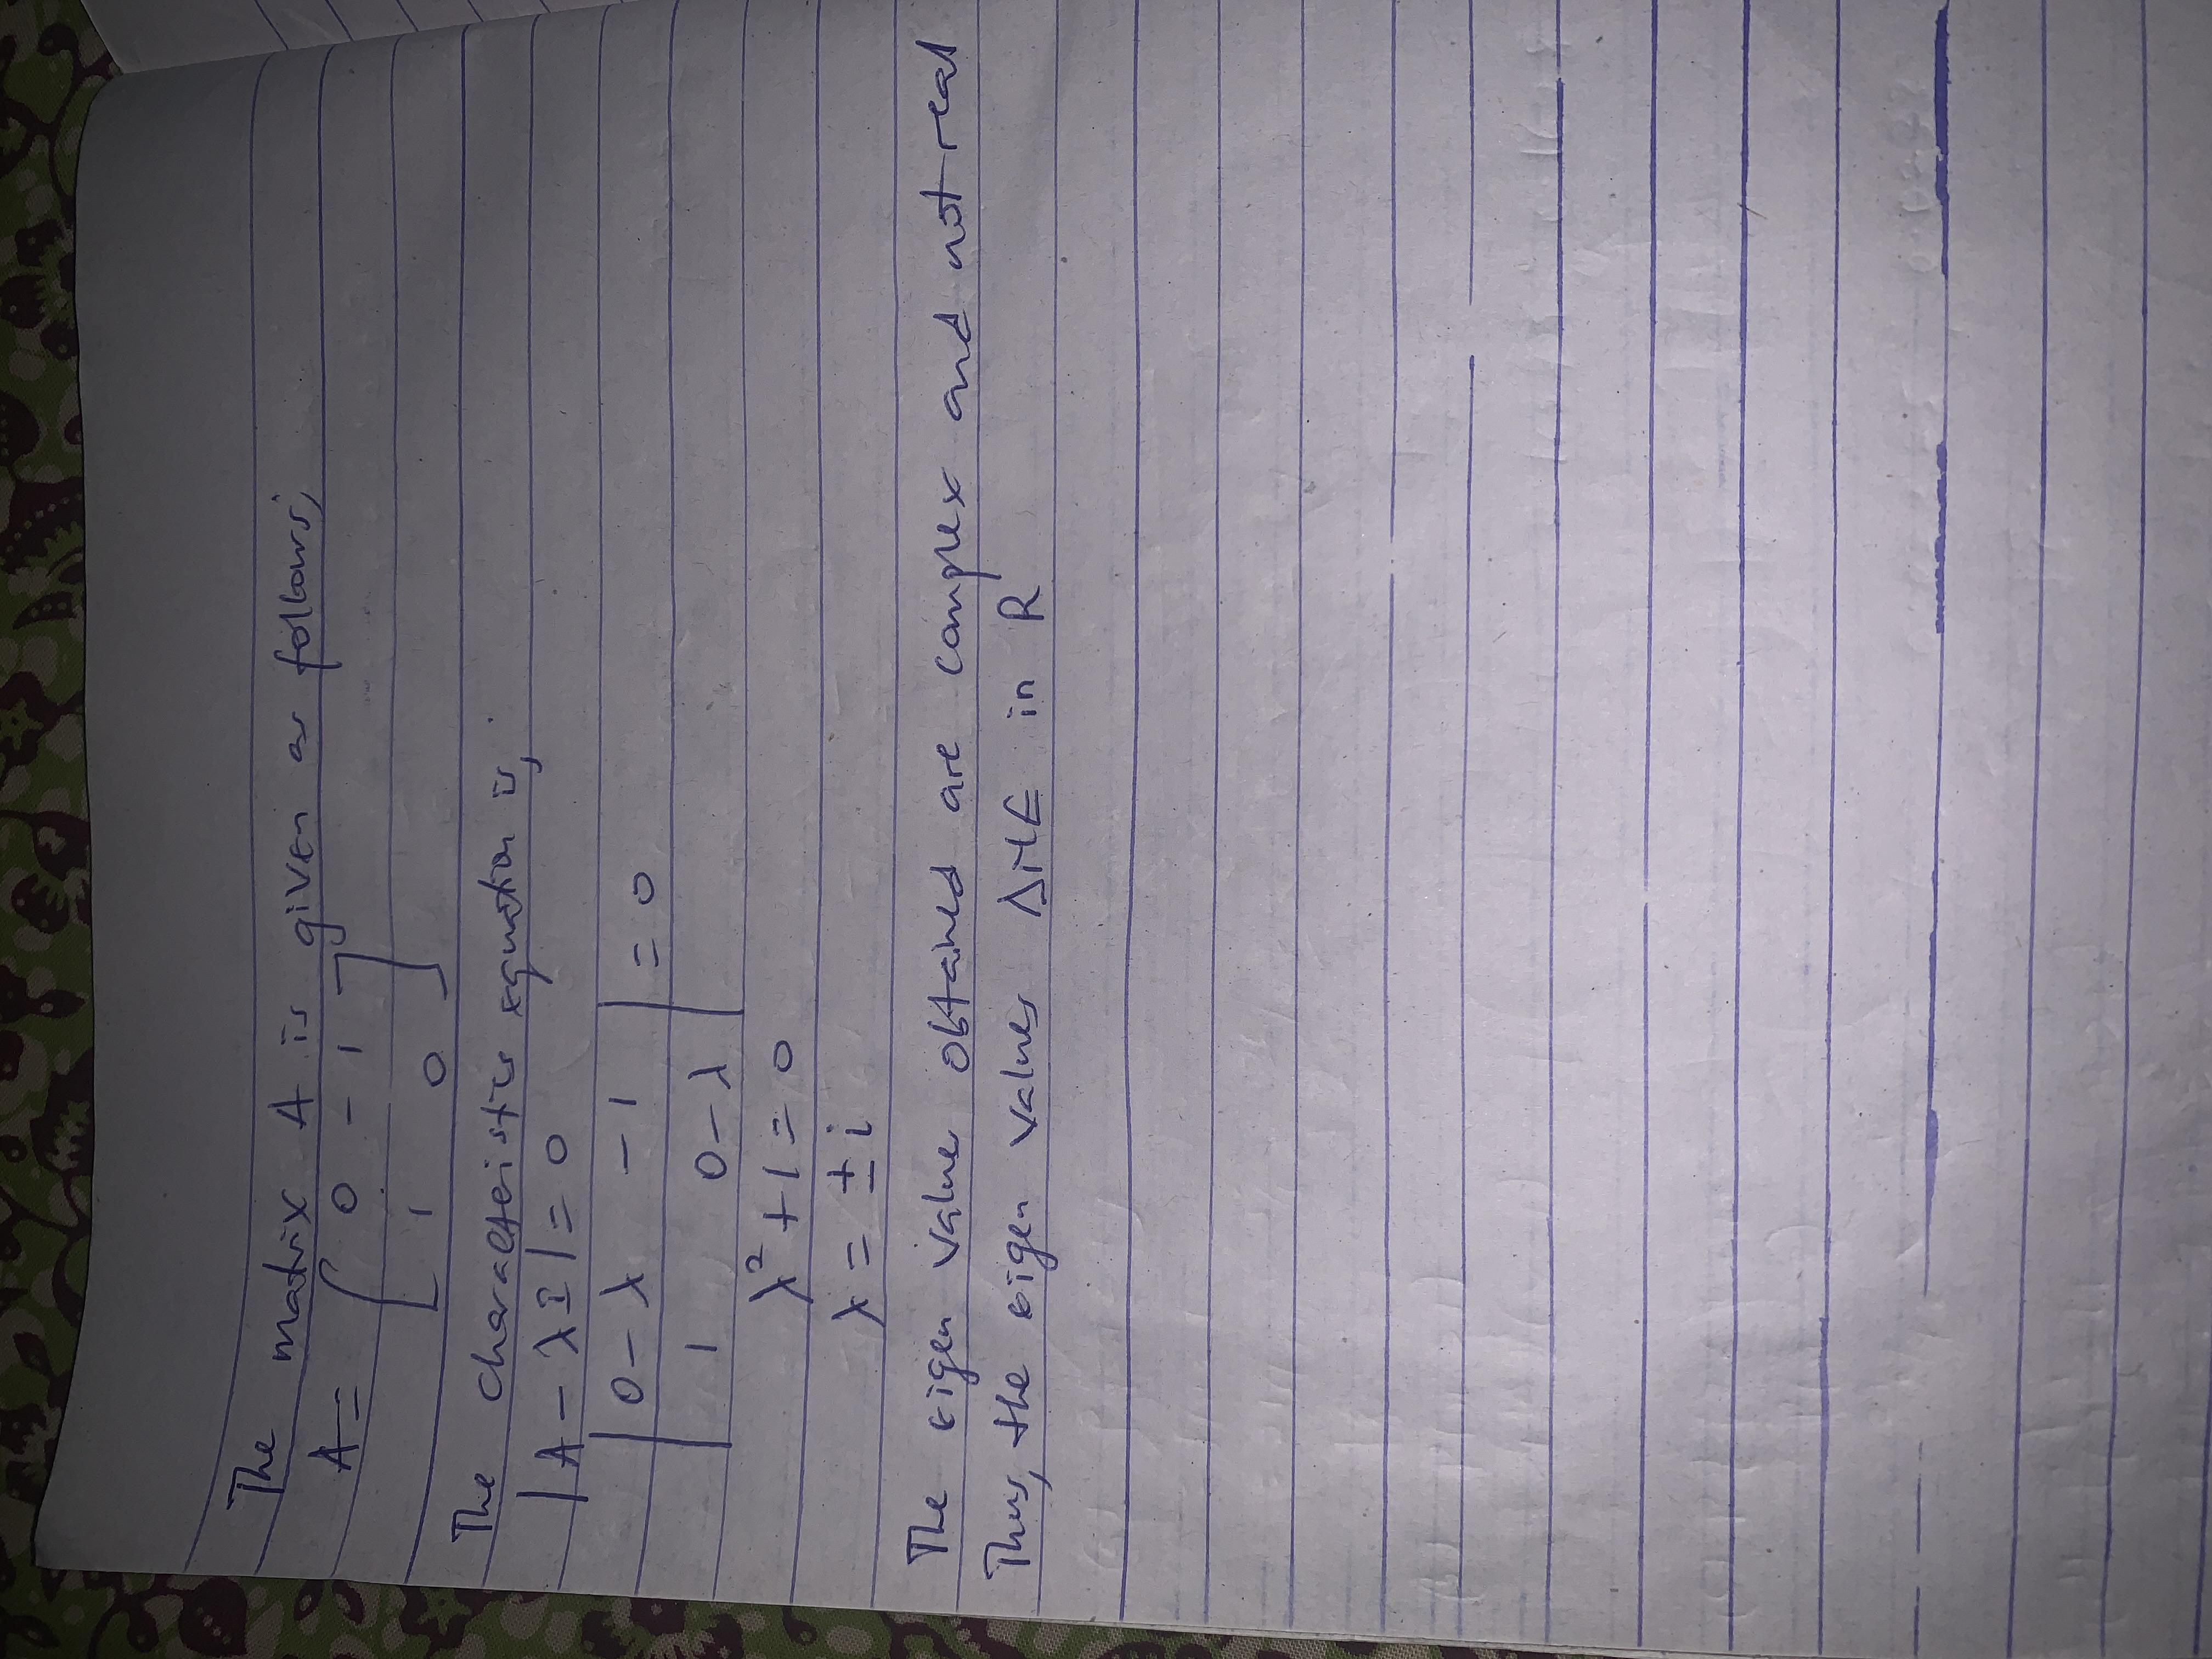 The matrix A is given as follows,
A = [ 0 -1
1 0 ]
The characteristics equation is,
|A - λI| = 0
| 0-λ -1 | = 0
| 1 0-λ |
λ² + 1 = 0
λ = ± i
The eigen value obtained are complex and not real
Thus, the eigen values in R